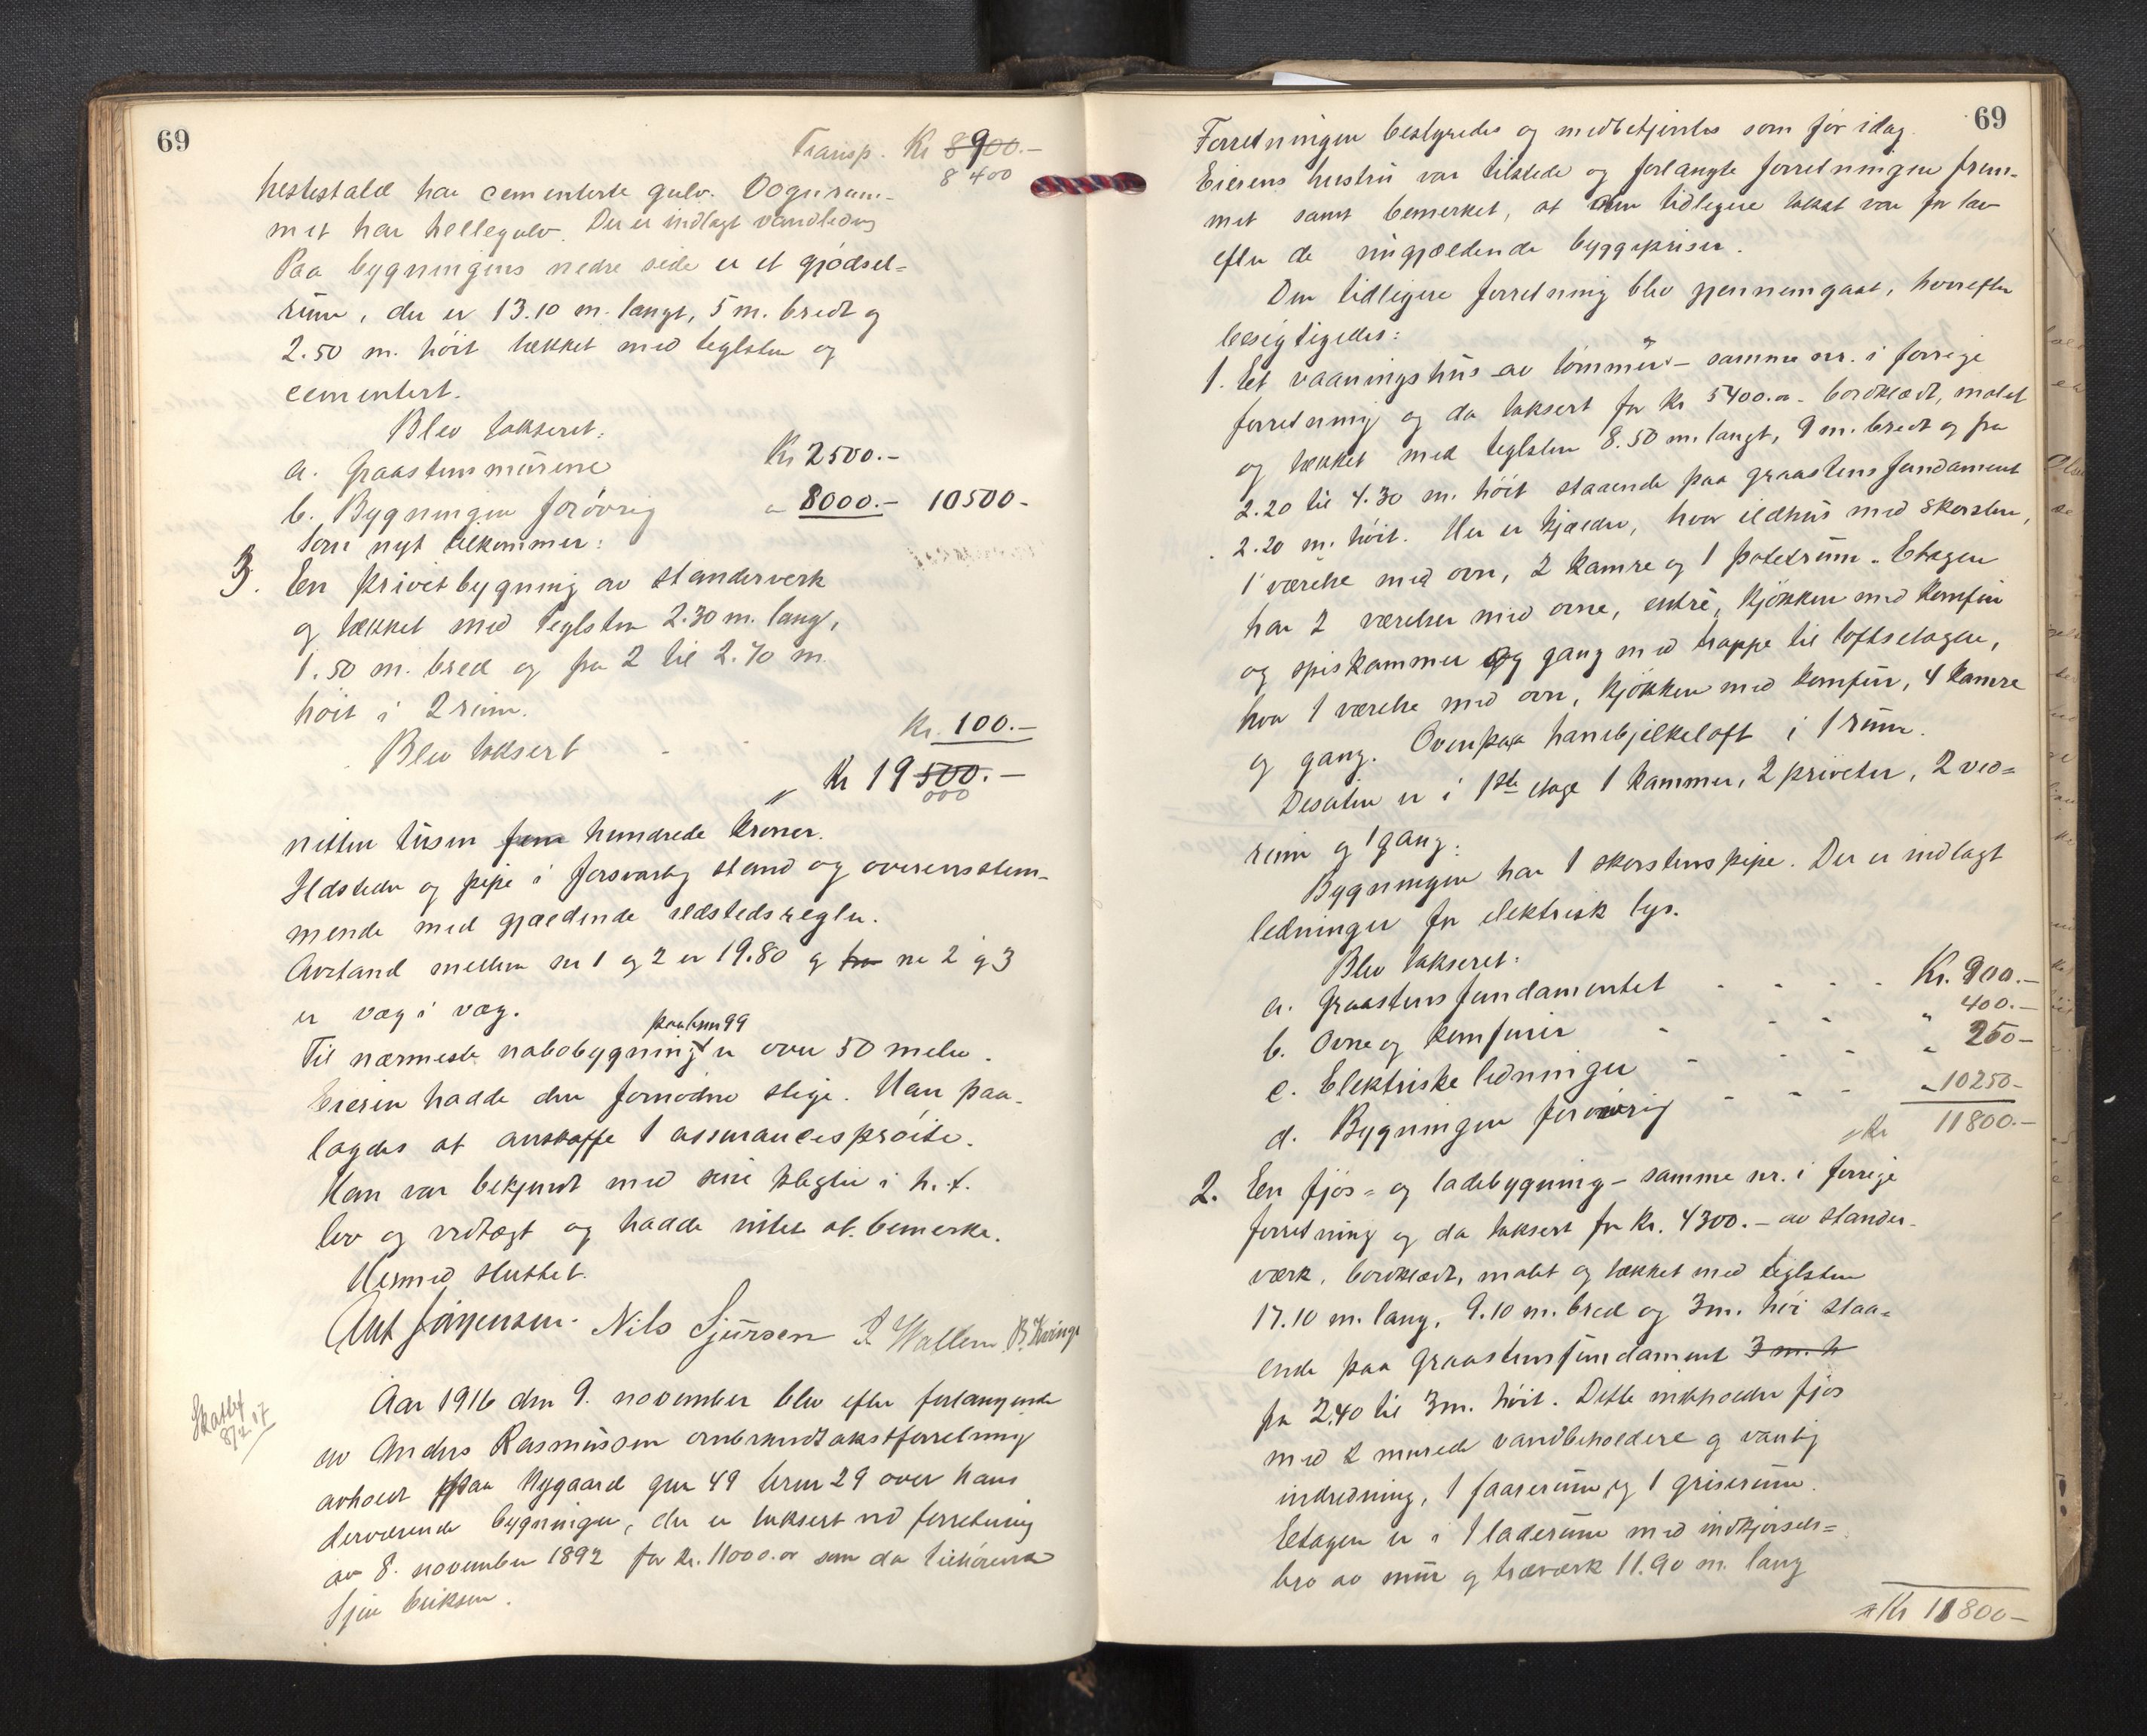 69
Transp. Kr 8900.-
8400
hestestald har cementerte gulv. Vognrum-
met har hellegulv. Der er indlagt vandledning
Paa bygningens nedre side er et gjødsel-
rum, der er 13.10 m. langt, 5 m. bredt og
2.50 m. höit tækket med teglsten og
cementert.
Blev takseret:
a. Graastensmurene Kr 2500.-
b. Bygningen forövrig " 8000.- 10500-
Som nyt tilkommer:
3. En privetbygning av standerverk
og tækket med teglsten 2.30 m. lang,
1.50 m. bred og fra 2 til 2.70 m.
höit i 2 rum.
Blev taksert - Kr. 100.-
" Kr 19500.-
000
nitten tusen fem hundrede kroner.
Ildsteder og pipe i forsvarlig stand og overensstem-
mende med gjældende ildstedsregler.
Avstand mellem nr 1 og 2 er 19.80 og fra nr 2 og 3
er væg i væg.
paa brnr 99
Til nærmeste nabobygning er over 50 meter.
Eieren hadde den fornødne stige. Han paa-
lagdes at anskaffe 1 assurancesprøite.
Han var bekjendt med sine pligter i h.t.
lov og vedtægt og hadde intet at bemerke.
Hermed sluttet.
Ant Jörgensen. Nils Sjursen I. Wallem B. Kvinge
Skatlf
8/2 17
Aar 1916 den 9. november blev efter forlangende
av Anders Rasmussen ombrandtakstforretning
avholdt paa Nygaard gnr 49 brnr 29 over hans
derværende bygninger, der er taksert ved forretning
av 8. november 1892 for kr. 11000.00 som da tilhørende
Sjur Eriksen.
69
Forretningen bestyredes og medbetjentes som før idag.
Eierens hustru var tilstede og forlangte forretningen frem-
met samt bemerket, at den tidligere takst var for lav
efter de nugjældende byggepriser.
Den tidligere forretning blev gjennemgaat, hvorefter
besigtigedes:
1. Et vaaningshus av tømmer - samme nr. i forrige
forretning og da taksert for Kr 5400.00 - bordklædt, malet
og tækket med teglsten 8.50 m. langt, 9 m. bredt og fra
2.20 til 4.30 m. höit staaende paa graastensfundament
2.20 m. höit. Her er kjælder, hvor ildhus med skorsten,
1 værelse med ovn, 2 kamre og 1 potetrum. Etagen
har 2 værelser med ovne, entré, kjøkken med komfur
og spiskammer og gang med trappe til loftsetagen,
hvor 1 værelse med ovn, kjøkken med komfur, 4 kamre
og gang. Ovenpaa hanebjelkeloft i 1 rum.
Desuten er i 1ste etage 1 kammer, 2 priveter, 2 ved=
rum og 1 gang.
Bygningen har 1 skorstenspipe. Der er indlagt
ledninger for elektrisk lys.
Blev takseret:
a. Graastensfundamentet - - - - Kr. 900.-
b. Ovne og komfurer - - - " 400.-
c. Elektriske ledninger - - - " 250-
d. Bygningen forøvrig - - - " 10250-
Kr 11800.-
2. En fjös- og ladebygning - samme nr. i forrige
forretning og da taksert for Kr. 4300.- av stander-
værk, bordklædt, malet og tækket med teglsten
17.10 m. lang, 9.10 m. bred og 3 m. höi staa=
ende paa graastensfundament 3 m. h
fra 2.40 til 3 m. höit. Dette indeholder fjös
med 2 murede vandbeholdere og vanlig
indredning, 1 faarerum og 1 griserum.
Etagen er i 1 laderum med indkjørsels=
bro av mur og træværk 11.90 m. lang
Kr 11800-